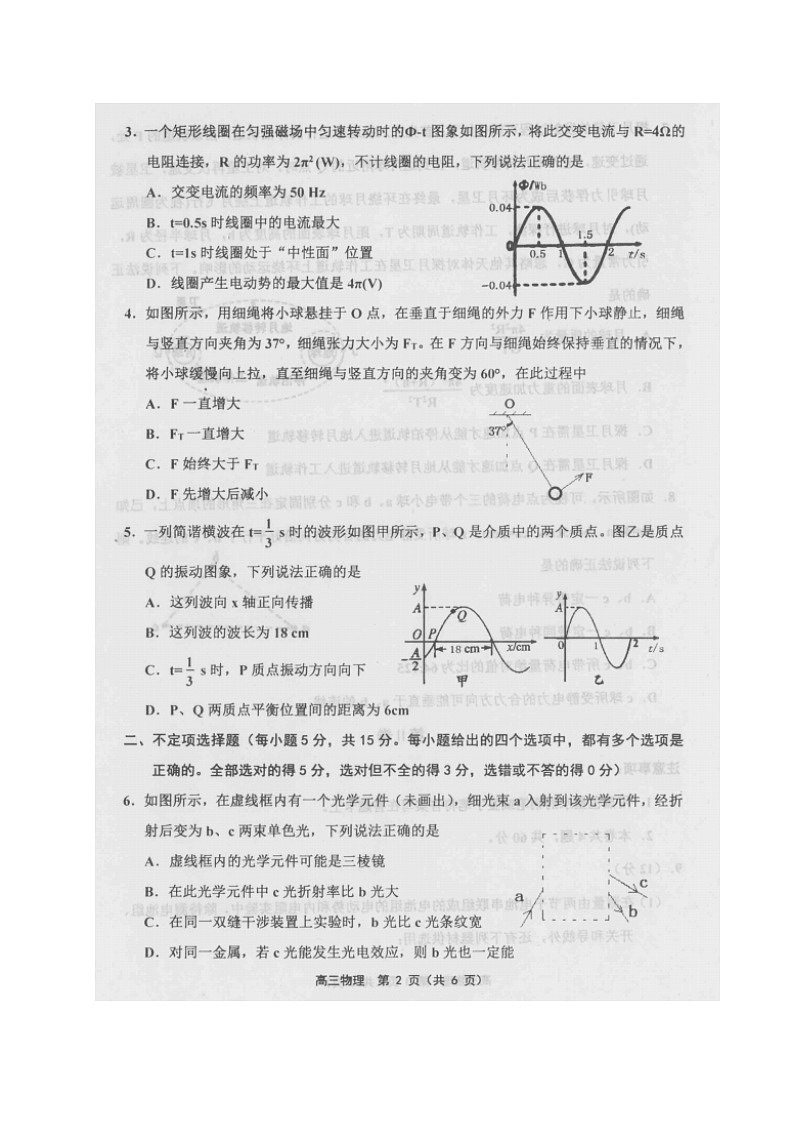 3．一个矩形线圈在匀强磁场中匀速转动时的Φ-t 图象如图所示，将此交变电流与 R=4Ω的
电阻连接，R 的功率为 2π² (W)，不计线圈的电阻，下列说法正确的是
A．交变电流的频率为 50 Hz
B．t=0.5s 时线圈中的电流最大
C．t=1s 时线圈处于“中性面”位置
D．线圈产生电动势的最大值是 4π(V)
Φ/Wb
0.04
0
0.5
1
1.5
2
t/s
-0.04
4．如图所示，用细绳将小球悬挂于 O 点，在垂直于细绳的外力 F 作用下小球静止，细绳
与竖直方向夹角为 37°，细绳张力大小为 FT。在 F 方向与细绳始终保持垂直的情况下，
将小球缓慢向上拉，直至细绳与竖直方向的夹角变为 60°，在此过程中
A．F 一直增大
B．FT 一直增大
C．F 始终大于 FT
D．F 先增大后减小
O
37°
F
5．一列简谐横波在 t=1/3 s 时的波形如图甲所示，P、Q 是介质中的两个质点。图乙是质点
Q 的振动图象，下列说法正确的是
A．这列波向 x 轴正向传播
B．这列波的波长为 18 cm
C．t=1/3 s 时，P 质点振动方向向下
D．P、Q 两质点平衡位置间的距离为 6cm
y
A
Q
O
P
-A/2
18 cm
x/cm
甲
y
A
0
1
2
t/s
乙
二、不定项选择题（每小题 5 分，共 15 分。每小题给出的四个选项中，都有多个选项是
正确的。全部选对的得 5 分，选对但不全的得 3 分，选错或不答的得 0 分）
6．如图所示，在虚线框内有一个光学元件（未画出），细光束 a 入射到该光学元件，经折
射后变为 b、c 两束单色光，下列说法正确的是
A．虚线框内的光学元件可能是三棱镜
B．在此光学元件中 c 光折射率比 b 光大
C．在同一双缝干涉装置上实验时，b 光比 c 光条纹宽
D．对同一金属，若 c 光能发生光电效应，则 b 光也一定能
a
c
b
高三物理 第 2 页（共 6 页）